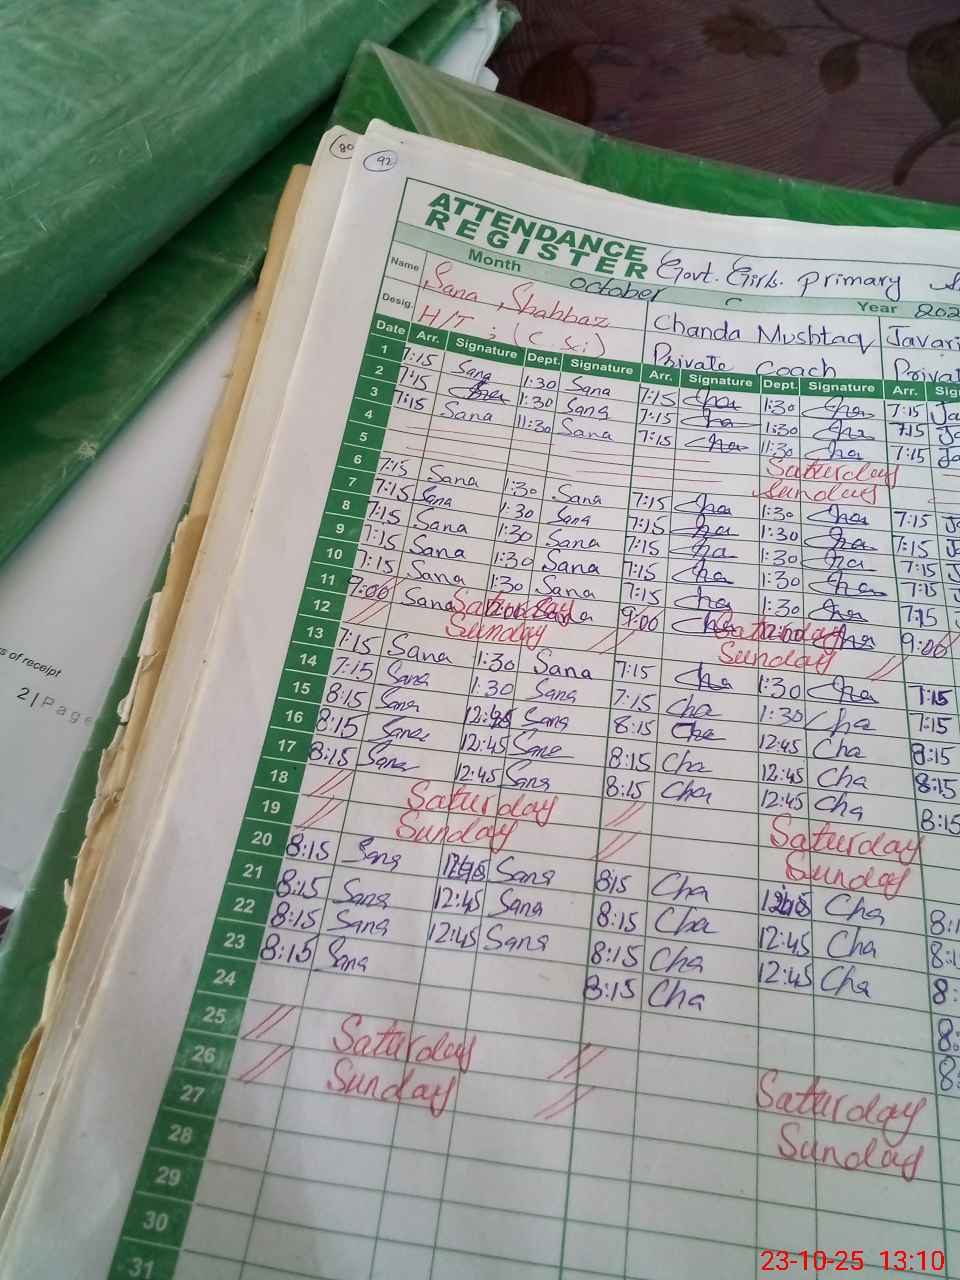 80
92
ATTENDANCE
REGISTER
Govt. Girls. Primary
Month October Year 202
Name Sana Shahbaz Chanda Mushtaq Javari
Desig. H/T : (C.&i) Private Coach Privat
Date Arr. Signature Dept. Signature Arr. Signature Dept. Signature Arr. Sig
1 7:15 Sana 1:30 Sana 7:15 Cha 1:30 Cha 7:15 Ja
2 7:15 1:30 Sana 7:15 Cha 1:30 Cha 7:15 Ja
3 7:15 Sana 11:30 Sana 7:15 Cha 11:30 Cha 7:15 Ja
4 Saturday
5 Sunday
6 7:15 Sana 1:30 Sana 7:15 Cha 1:30 Cha 7:15
7 7:15 Sana 1:30 Sana 7:15 Cha 1:30 Cha 7:15
8 7:15 Sana 1:30 Sana 7:15 Cha 1:30 Cha 7:15
9 7:15 Sana 1:30 Sana 7:15 Cha 1:30 Cha 7:15
10 7:15 Sana 1:30 Sana 7:15 Cha 1:30 Cha 7:15
11 9:00 Sana Saturday 12:00 Sana 9:00 Cha Saturday 12:00 Cha 9:00
12 Sunday Sunday
13 7:15 Sana 1:30 Sana 7:15 Cha 1:30 Cha 7:15
14 7:15 Sana 1:30 Sana 7:15 Cha 1:30 Cha 7:15
15 8:15 Sana 12:45 Sana 8:15 Cha 12:45 Cha 8:15
16 8:15 Sana 12:45 Sana 8:15 Cha 12:45 Cha 8:15
17 8:15 Sana 12:45 Sana 8:15 Cha 12:45 Cha 8:15
18 Saturday Saturday
19 Sunday Sunday
20 8:15 Sana 12:45 Sana 8:15 Cha 12:45 Cha 8:1
21 8:15 Sana 12:45 Sana 8:15 Cha 12:45 Cha 8:1
22 8:15 Sana 12:45 Sana 8:15 Cha 12:45 Cha 8:
23 8:15 Sana 8:15 Cha 8:
24 8:
25 Saturday Saturday
26 Sunday Sunday
27
28
29
30
31
s of receipt
2 | Page
23-10-25 13:10